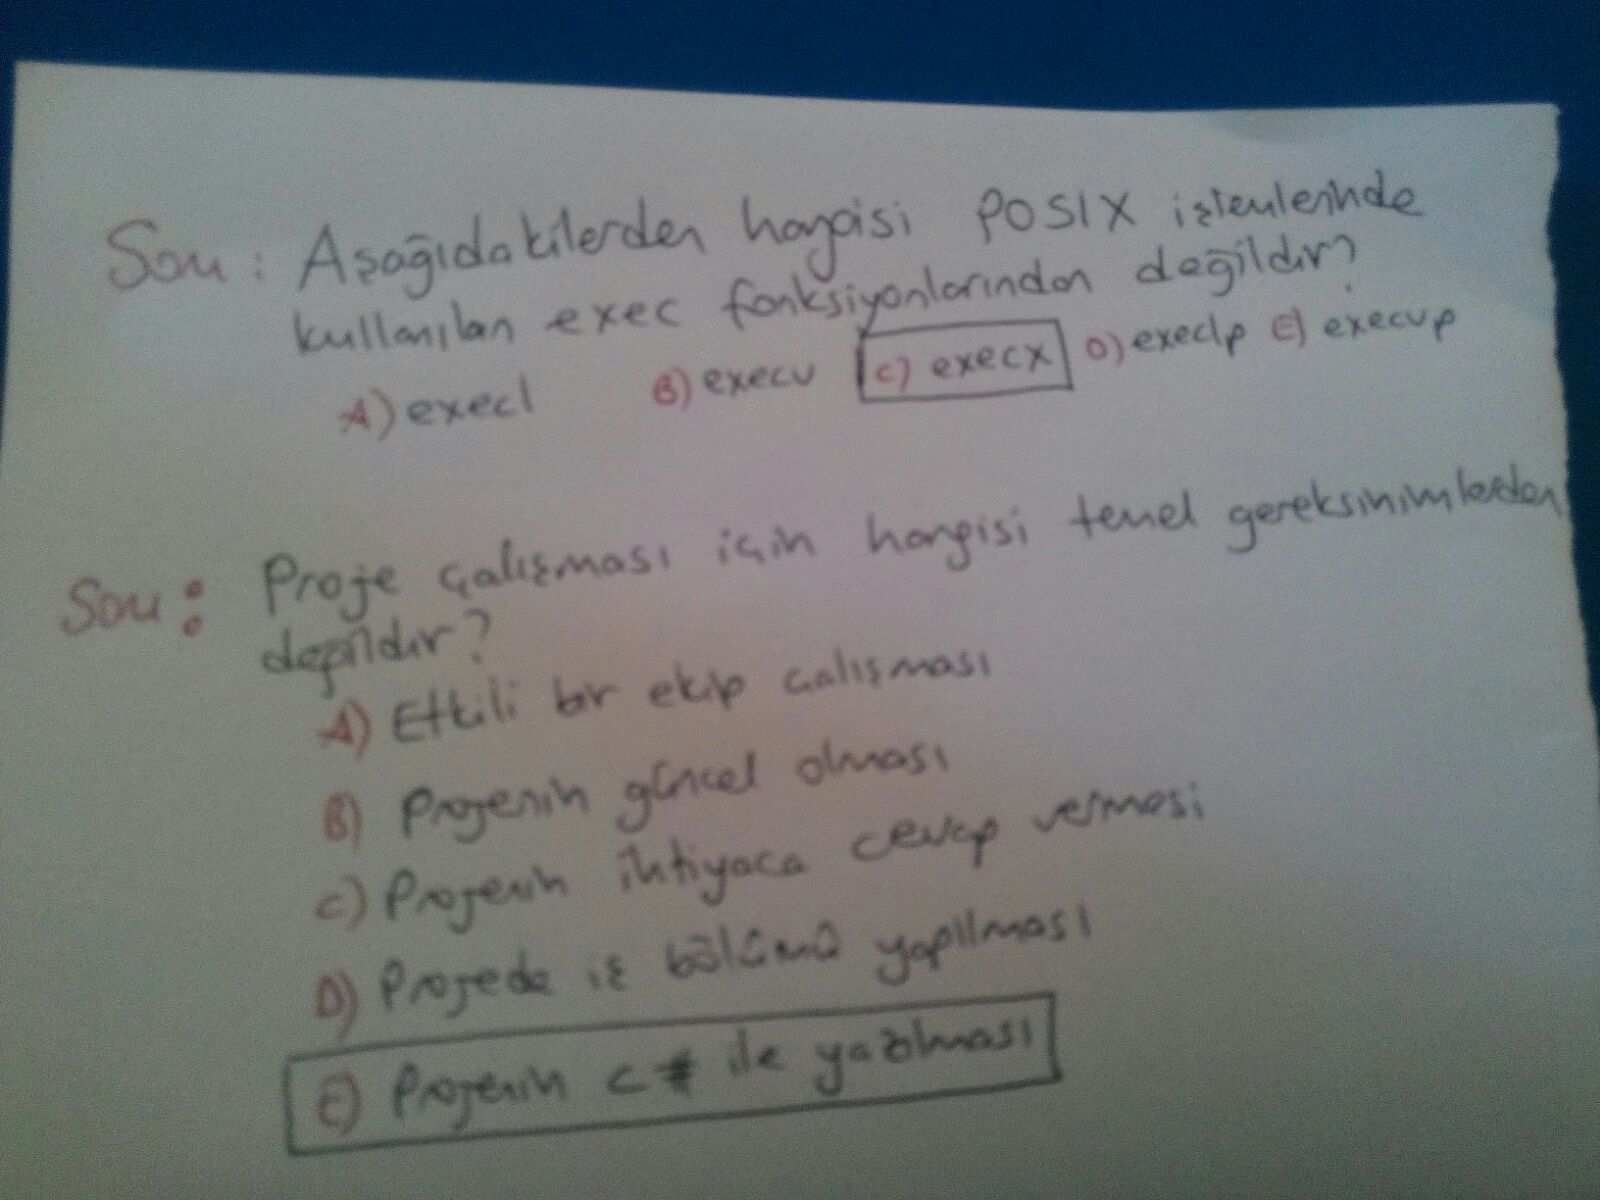 Soru: Aşağıdakilerden hangisi POSIX işlemlerinde
kullanılan exec fonksiyonlarından değildir?
A) execl B) execv C) execx D) execlp E) execvp
Soru: Proje çalışması için hangisi temel gereksinimlerden
değildir?
A) Etkili bir ekip çalışması
B) Projenin güncel olması
C) Projenin ihtiyaca cevap vermesi
D) Projede iş bölümü yapılması
E) Projenin c# ile yazılması